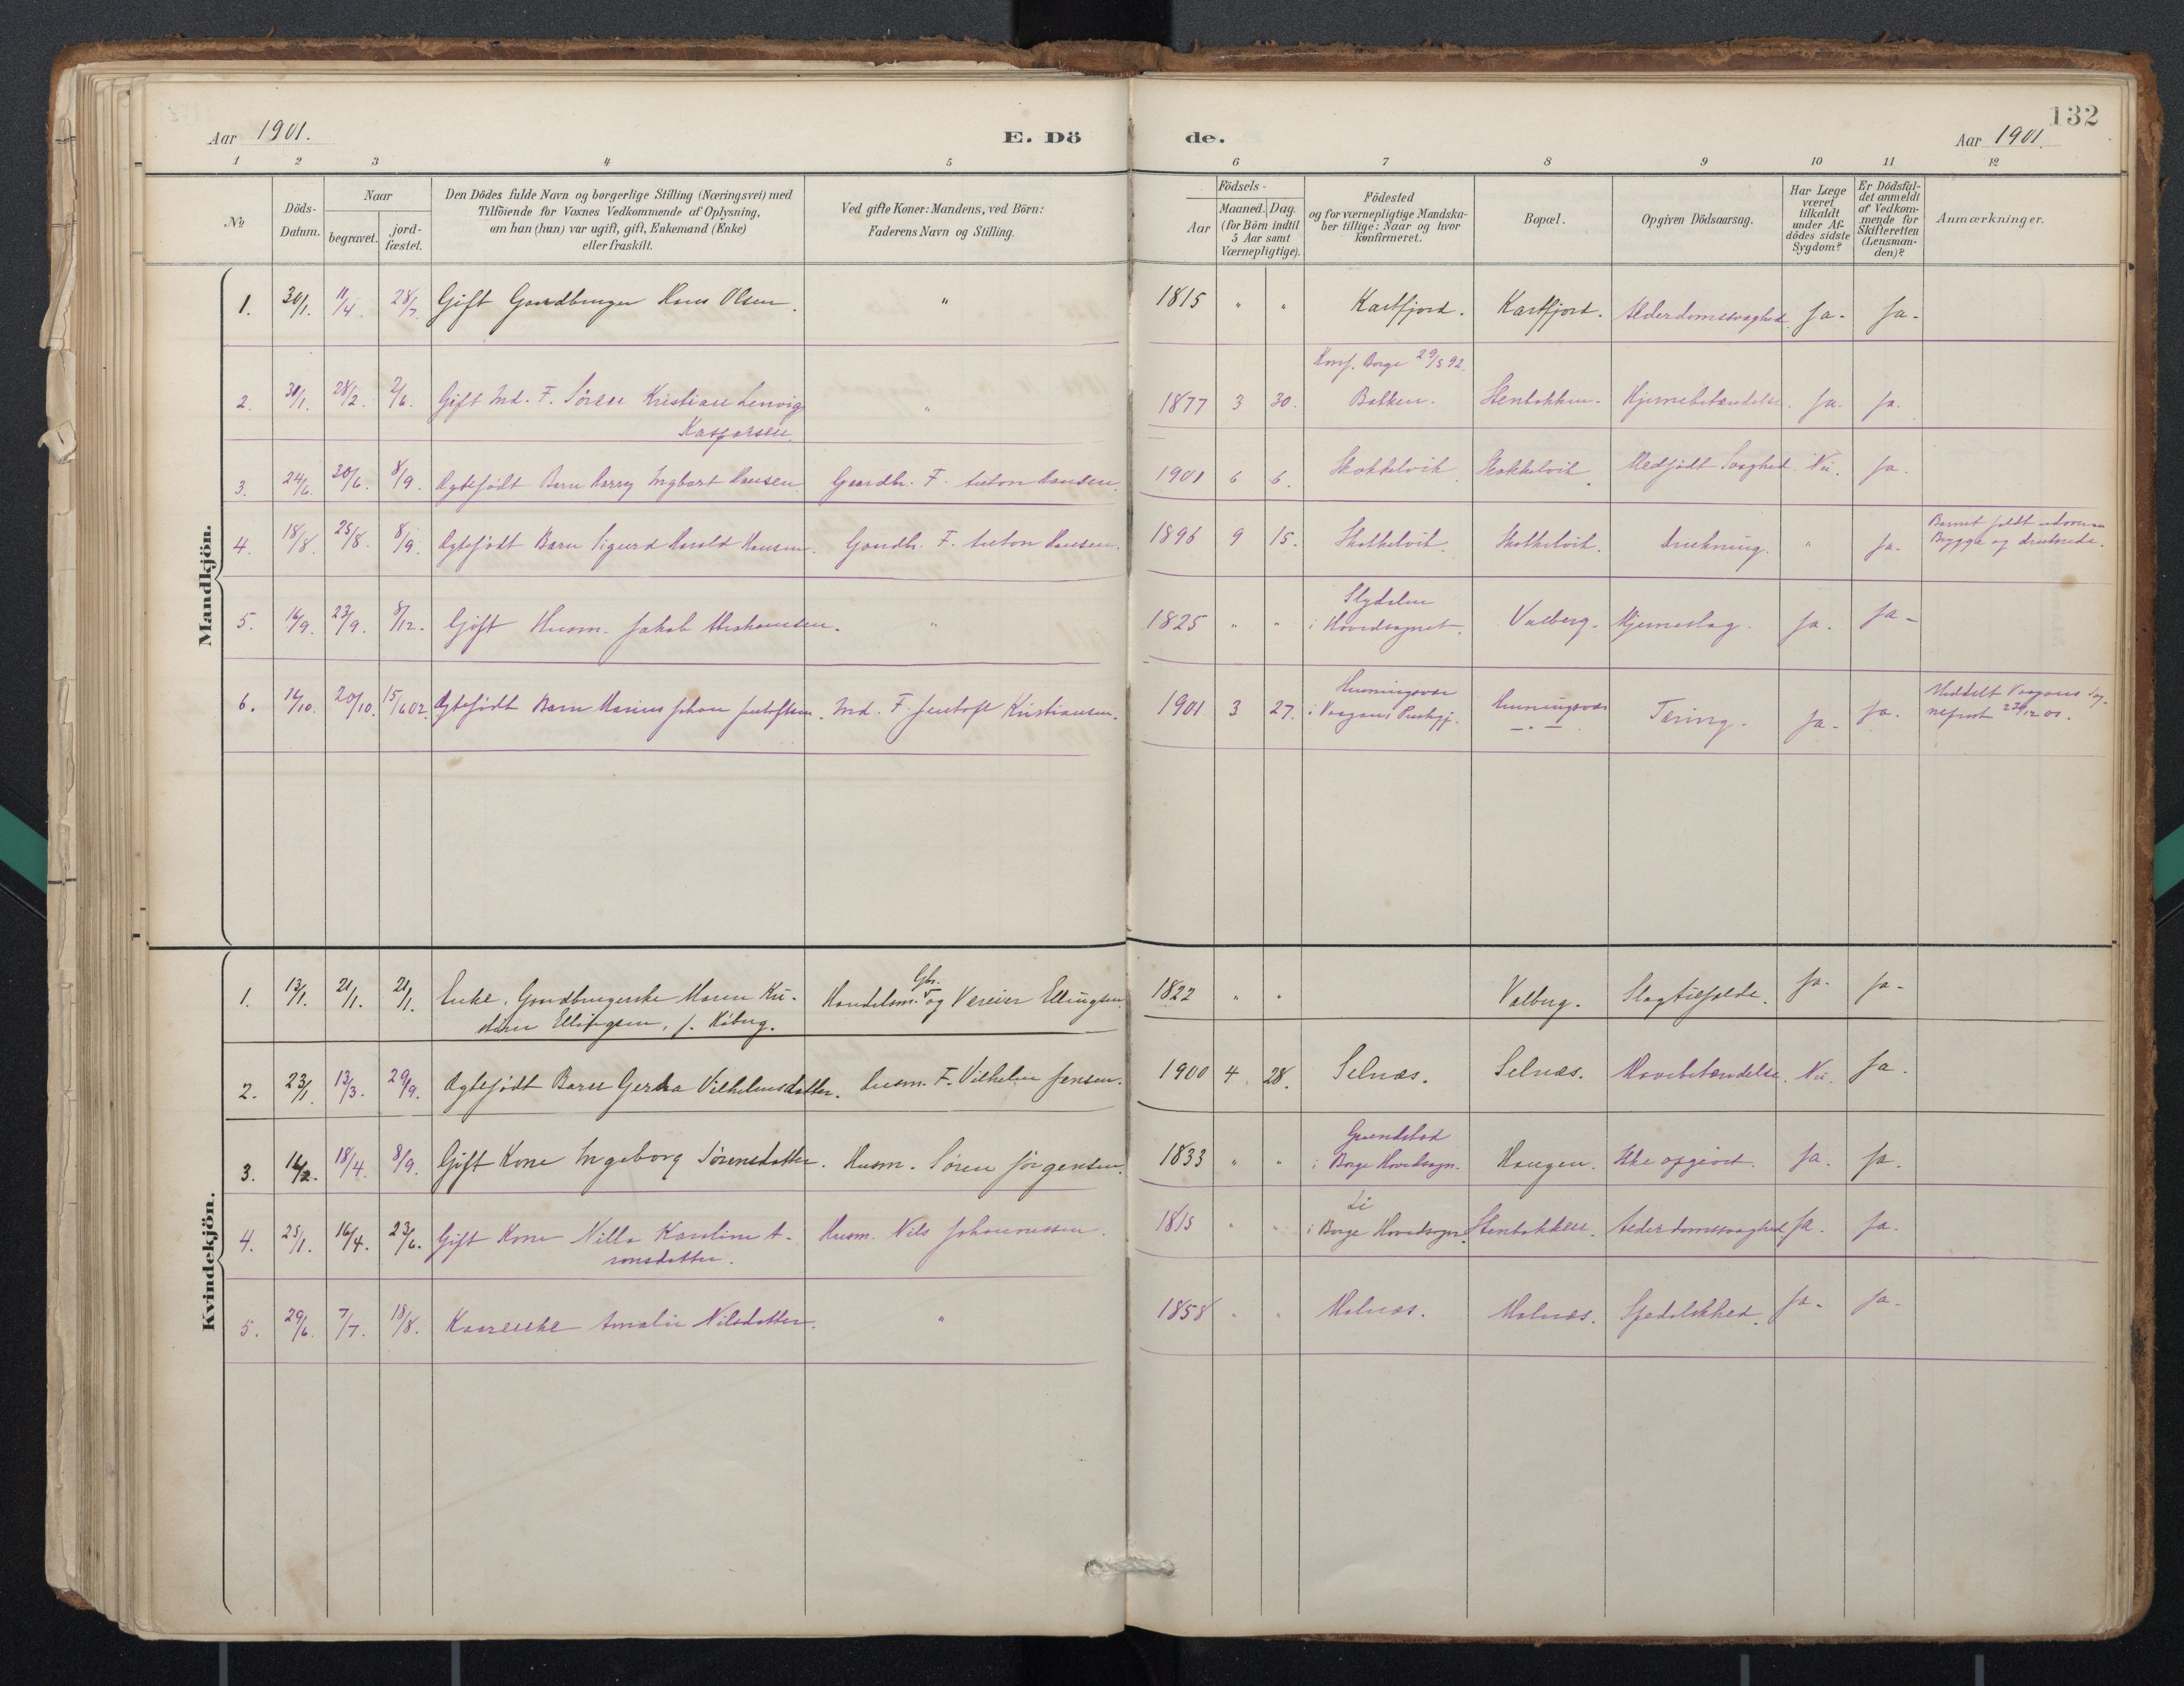 132
Aar 1901. E. Dö de. Aar 1901.
1 2 3 4 5 6 7 8 9 10 11 12
No
Döds-
Datum.
Naar
begravet.
jord-
fæstet.
Den Dödes fulde Navn og borgerlige Stilling (Næringsvei) med
Tilföiende for Voxnes Vedkommende af Oplysning,
om han (hun) var ugift, gift, Enkemand (Enke)
eller fraskilt.
Ved gifte Koner: Mandens, ved Börn:
Faderens Navn og Stilling.
Födsels-
Aar
Maaned. Dag.
(for Börn indtil
5 Aar samt
Værnepligtige).
Födested
og for værnepligtige Mandska-
ber tillige: Naar og hvor
konfirmeret.
Bopæl.
Opgiven Dödsaarsag.
Har Læge
været
tilkaldt
under Af-
dödes sidste
Sygdom?
Er Dödsfal-
det anmeldt
af Vedkom-
mende for
Skifteretten
(Lensman-
den)?
Anmærkninger.
Mandkjön.
1. 30/1. 11/4. 28/7. Gift Gaardbruger Hans Olsen. " 1815 " " Kartfjord. Kartfjord. Alderdomssvaghed. Ja. Ja.
Konf. Borge 29/5 92.
2. 30/1. 28/2. 2/6. Gift Ind. F. Sören Kristian Lenvig " 1877 3 30. Bakken. Stenbakken. Hjernebetændelse. Ja. Ja.
Kaspersen.
3. 24/6. 30/6. 8/9. Ægtefödt Barn Harry Ingbart Hansen Gaardbr. F. Anton Hansen. 1901 6 6. Skokkelvik. Skokkelvik. Medfödt Svaghed. Nei. Ja.
4. 18/8. 25/8. 8/9. Ægtefödt Barn Sigurd Harald Hansen. Gaardb. F. Anton Hansen. 1896 9 15. Skokkelvik. Skokkelvik. Drukning. " Ja.
Barnet faldt udover en
Brygge og druknede.
Slydalen
5. 16/9. 23/9. 8/12. Gift Husm. Jakob Abrahamsen. " 1825 " " i Hovedsognet. Valberg. Hjerneslag. Ja. Ja.
Henningsvær
6. 14/10. 20/10. 15/6 02. Ægtefödt Barn Marius Johan Jentoftsen. Ind. F. Jentoft Kristiansen. 1901 3 27. i Vaagans Prestgj. Henningsvær Tæring. Ja. Ja.
Meddelt Vaagans Sog-
neprest 23/12 01.
Kvindekjön.
Gbr.
1. 13/1. 21/1. 21/1. Enke, Gaardbrugerske Maren Kri- Handelsm. og Væreier Ellingsen 1822 " " Valberg. Slagtilfælde. Ja. Ja.
stine Ellingsen, f. Röberg.
2. 23/1. 13/3. 29/9. Ægtefödt Barn Gerda Vilhelmsdatter. Husm. F. Vilhelm Jensen. 1900 4 28. Selnæs. Selnæs. Mavebetændelse. Nei. Ja.
Grundstad
3. 14/2. 18/4. 8/9. Gift Kone Ingeborg Sörensdatter. Husm. Sören Jörgensen. 1833 " " i Borge Hovedsogn. Haugen. Ikke opgivet. Ja. Ja.
Li
4. 25/1. 16/4. 23/6. Gift Kone Nilla Karoline A- Husm. Nils Johannessen. 1815 " " i Borge Hovedsogn. Stenbakken. Alderdomssvaghed. Ja. Ja.
ronsdatter.
5. 29/6. 7/7. 18/8. Kaareske Amalie Nilsdatter. " 1858 " " Molnæs. Molnæs. Spedalskhed. Ja. Ja.